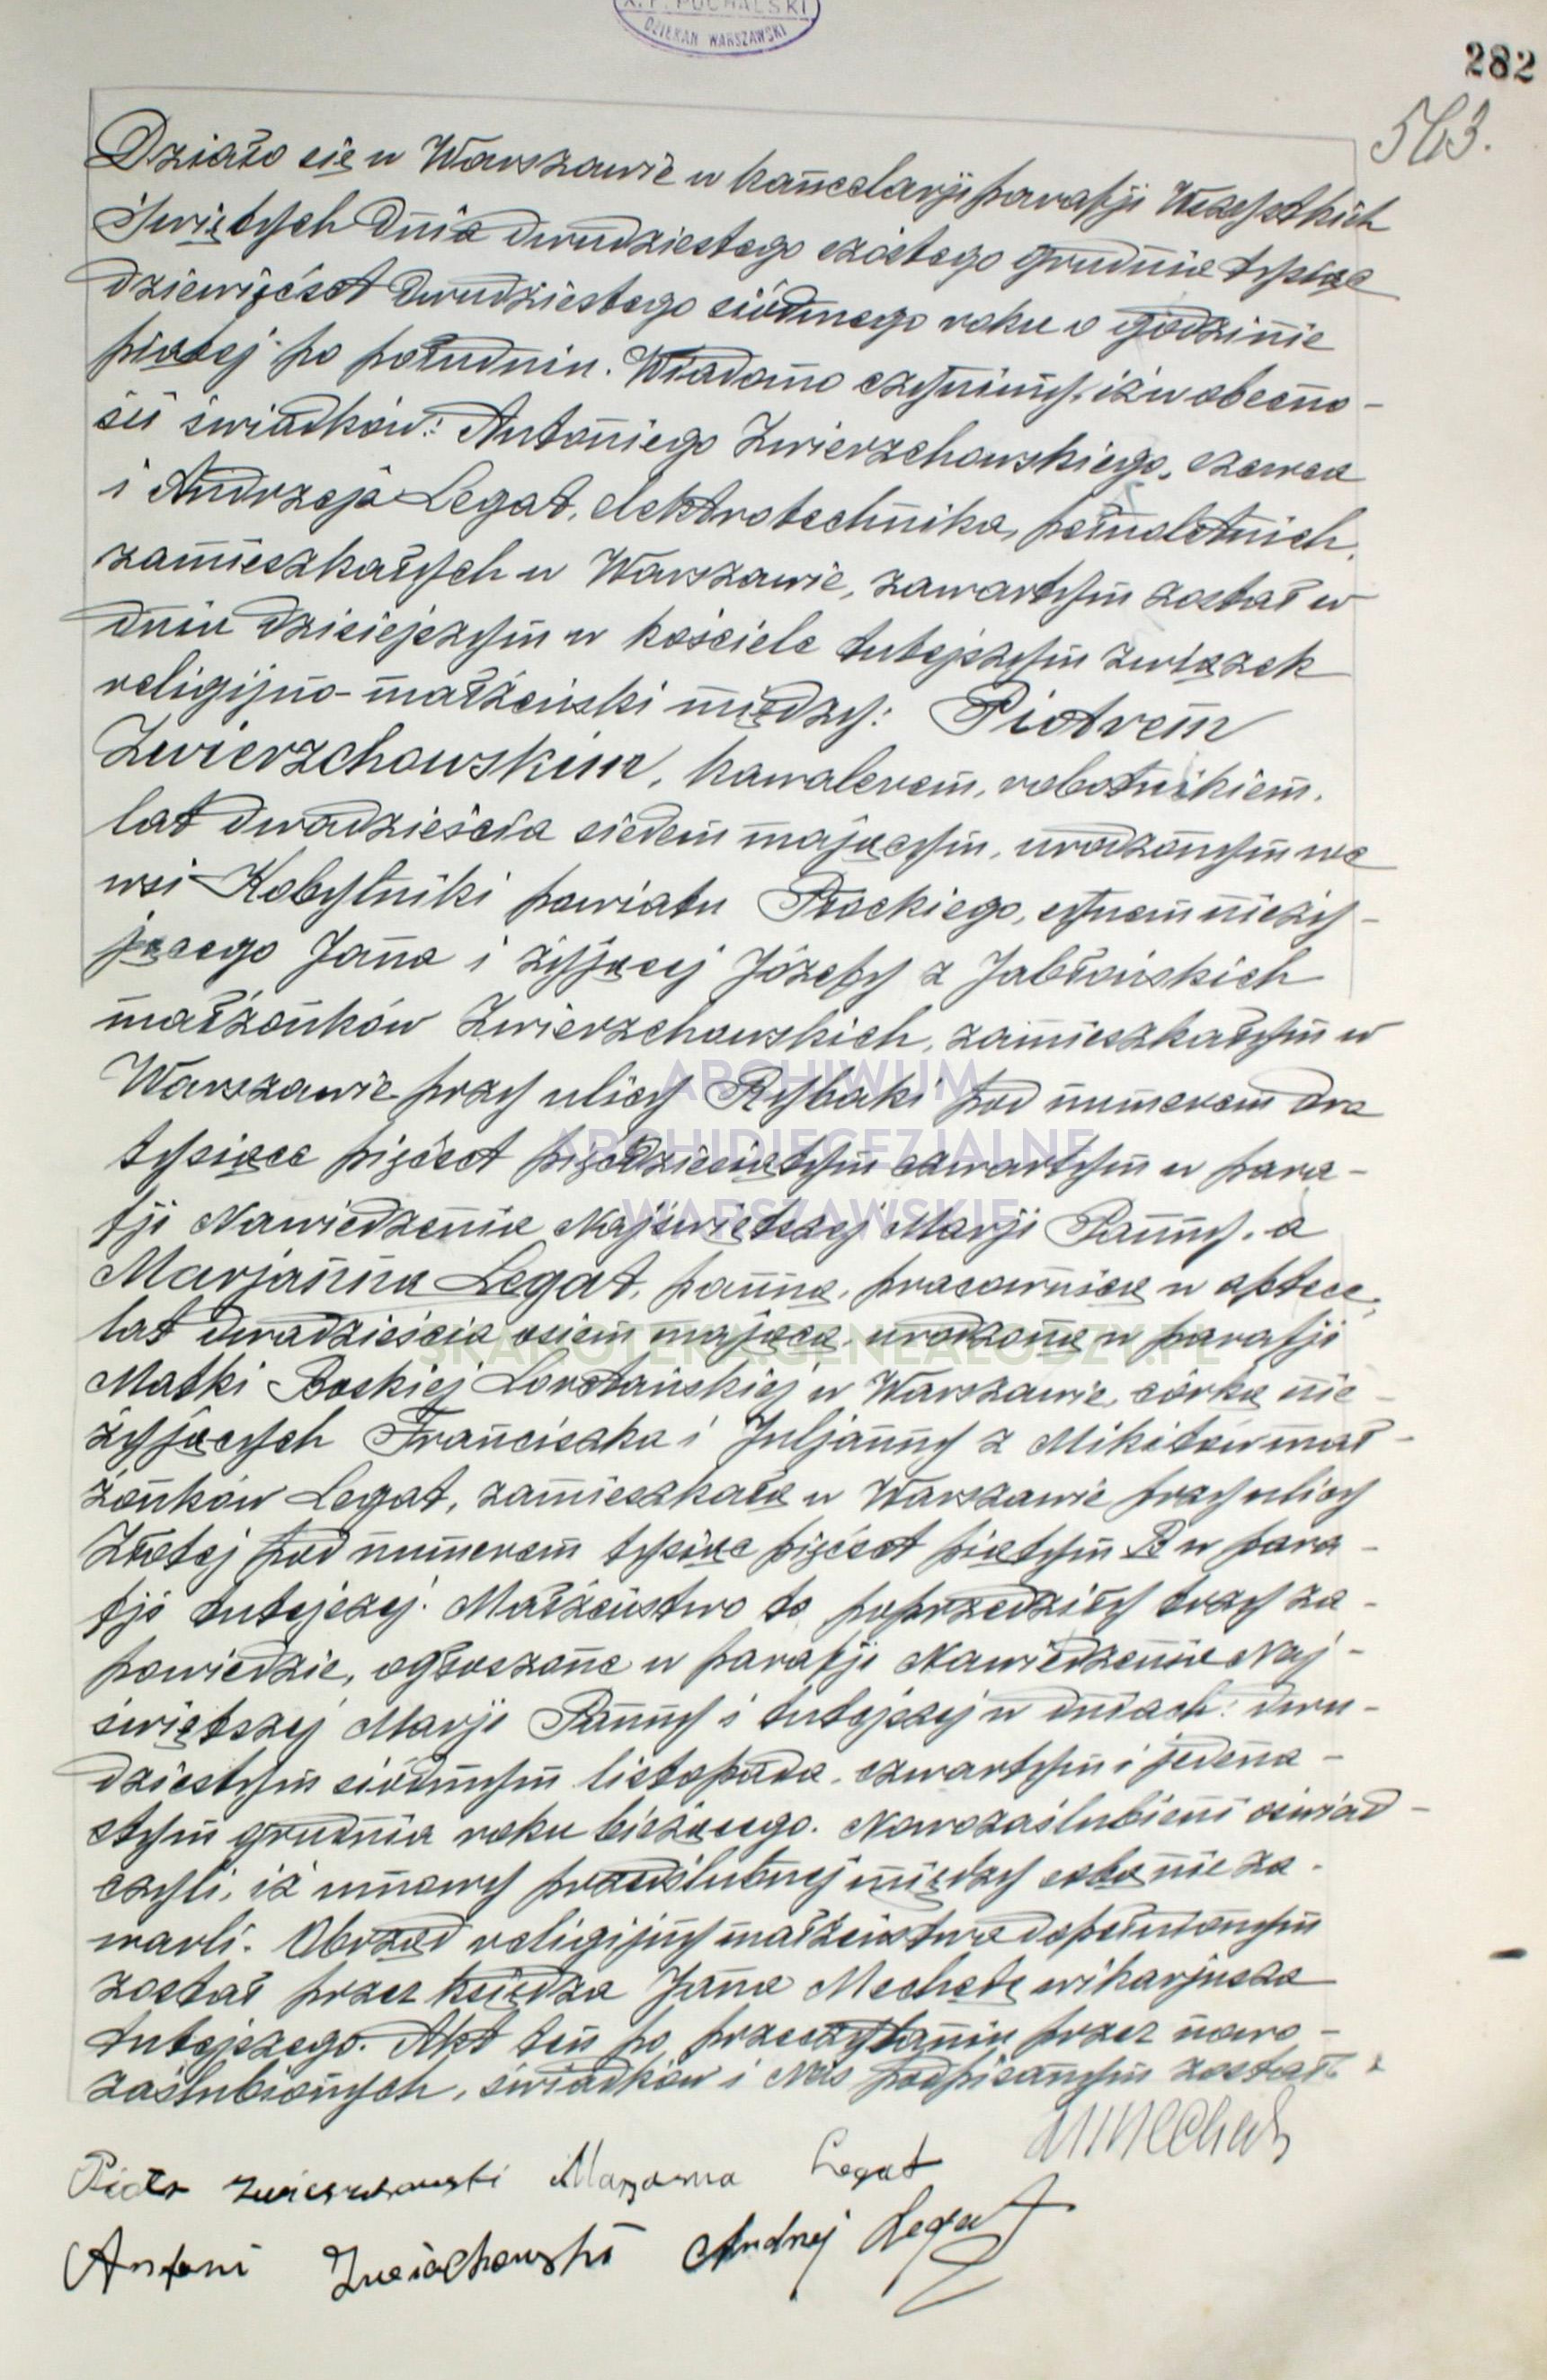 X. F. PUCHALSKI
DZIEKAN WARSZAWSKI
282
563.
Działo się w Warszawie w kancelarji parafji Wszystkich
Świętych dnia dwudziestego szóstego grudnia tysiąc
dziewięćset dwudziestego siódmego roku o godzinie
piątej po południu. Wiadomo czynimy, iż w obecno-
ści świadków: Antoniego Zwierzchowskiego, szewca
i Andrzeja Legat, elektrotechnika, pełnoletnich,
zamieszkałych w Warszawie, zawartym został w
dniu dzisiejszym w kościele tutejszym związek
religijno-małżeński między: Piotrem
Zwierzchowskim, kawalerem, robotnikiem,
lat dwadzieścia siedem mającym, urodzonym we
wsi Kobylniki powiatu Płockiego, synem nieży-
jącego Jana i żyjącej Józefy z Jabłońskich
małżonków Zwierzchowskich, zamieszkałym w
Warszawie przy ulicy Rybaki pod numerem dwa
tysiące pięćset pięćdziesiątym czwartym w para-
fji Nawiedzenia Najświętszej Marji Panny, a
Marjanną Legat, panną, pracownicą w aptece,
lat dwadzieścia osiem mającą, urodzoną w parafji
Matki Boskiej Loretańskiej w Warszawie, córką nie-
żyjących Franciszka i Juljanny z Mikitów mał-
żonków Legat, zamieszkałą w Warszawie przy ulicy
Złotej pod numerem tysiąc pięćset piątym B w para-
fji tutejszej. Małżeństwo to poprzedziły trzy za-
powiedzie, ogłoszone w parafji Nawiedzenia Naj-
świętszej Marji Panny i tutejszej w dniach: dwu-
dziestym siódmym listopada, czwartym i jedena-
stym grudnia roku bieżącego. Nowozaślubieni oświad-
czyli, iż umowy przedślubnej między sobą nie za-
warli. Obrząd religijny małżeństwa dopełnionym
został przez księdza Jana Mechetę wikarjusza
tutejszego. Akt ten po przeczytaniu przez nowo-
zaślubionych, świadków i Nas podpisanym został.
Piotr Zwierzchowski Marjanna Legat
Antoni Zwierzchowski Andrzej Legat
ARCHIWUM
ARCHIDIECEZJALNE
WARSZAWSKIE
SKANOTEKA.GENEALODZY.PL